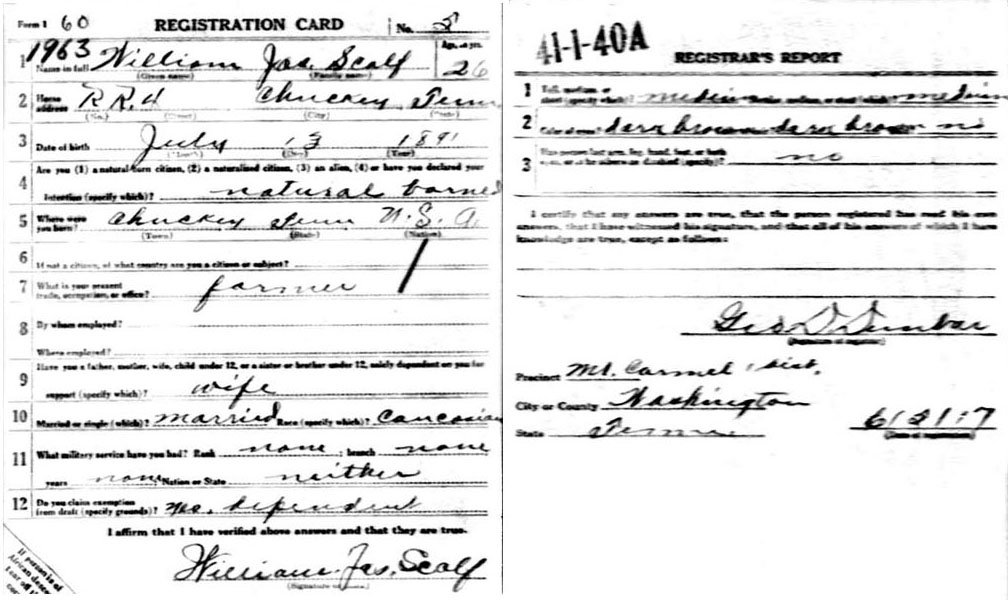 Form 1 60 REGISTRATION CARD No. 5
1963
1 William Jas. Scalf Age, in yrs. 26
Name in full (Given name) (Family name)
2 Home address R R. 4 Chuckey Tenn
(No.) (Street) (City) (State)
3 Date of birth July 13 1891
(Month) (Day) (Year)
4 Are you (1) a natural born citizen, (2) a naturalized citizen, (3) an alien, (4) or have you declared your
intention (specify which)? natural borned
5 Where were you born? Chuckey Tenn U. S. A.
(Town) (State) (Nation)
6 If not a citizen, of what country are you a citizen or subject?
7 What is your present trade, occupation, or office? farmer
8 By whom employed?
Where employed?
9 Have you a father, mother, wife, child under 12, or a sister or brother under 12, solely dependent on you for
support (specify which)? wife
10 Married or single (which)? married Race (specify which)? Caucasian
11 What military service have you had? Rank none ; branch none
years none Nation or State neither
12 Do you claim exemption from draft (specify grounds)? yes. dependent
I affirm that I have verified above answers and that they are true.
William Jas. Scalf
(Signature or mark)
If person is of
African descent
tear off
41-1-40A
REGISTRAR'S REPORT
1 Tall, medium, or short (specify which)? medium Slender, medium, or stout (which)? medium
2 Color of eyes? dark brown dark brown no
3 Has person lost arm, leg, hand, foot, or both eyes, or is he otherwise disabled (specify)? no
I certify that my answers are true, that the person registered has read his own
answers, that I have witnessed his signature, and that all of his answers of which I have
knowledge are true, except as follows:
Geo D. Dunbar
(Signature of registrar)
Precinct Mt. Carmel, dist.
City or County Washington
State Tenn 6/5/17
(Date of registration)